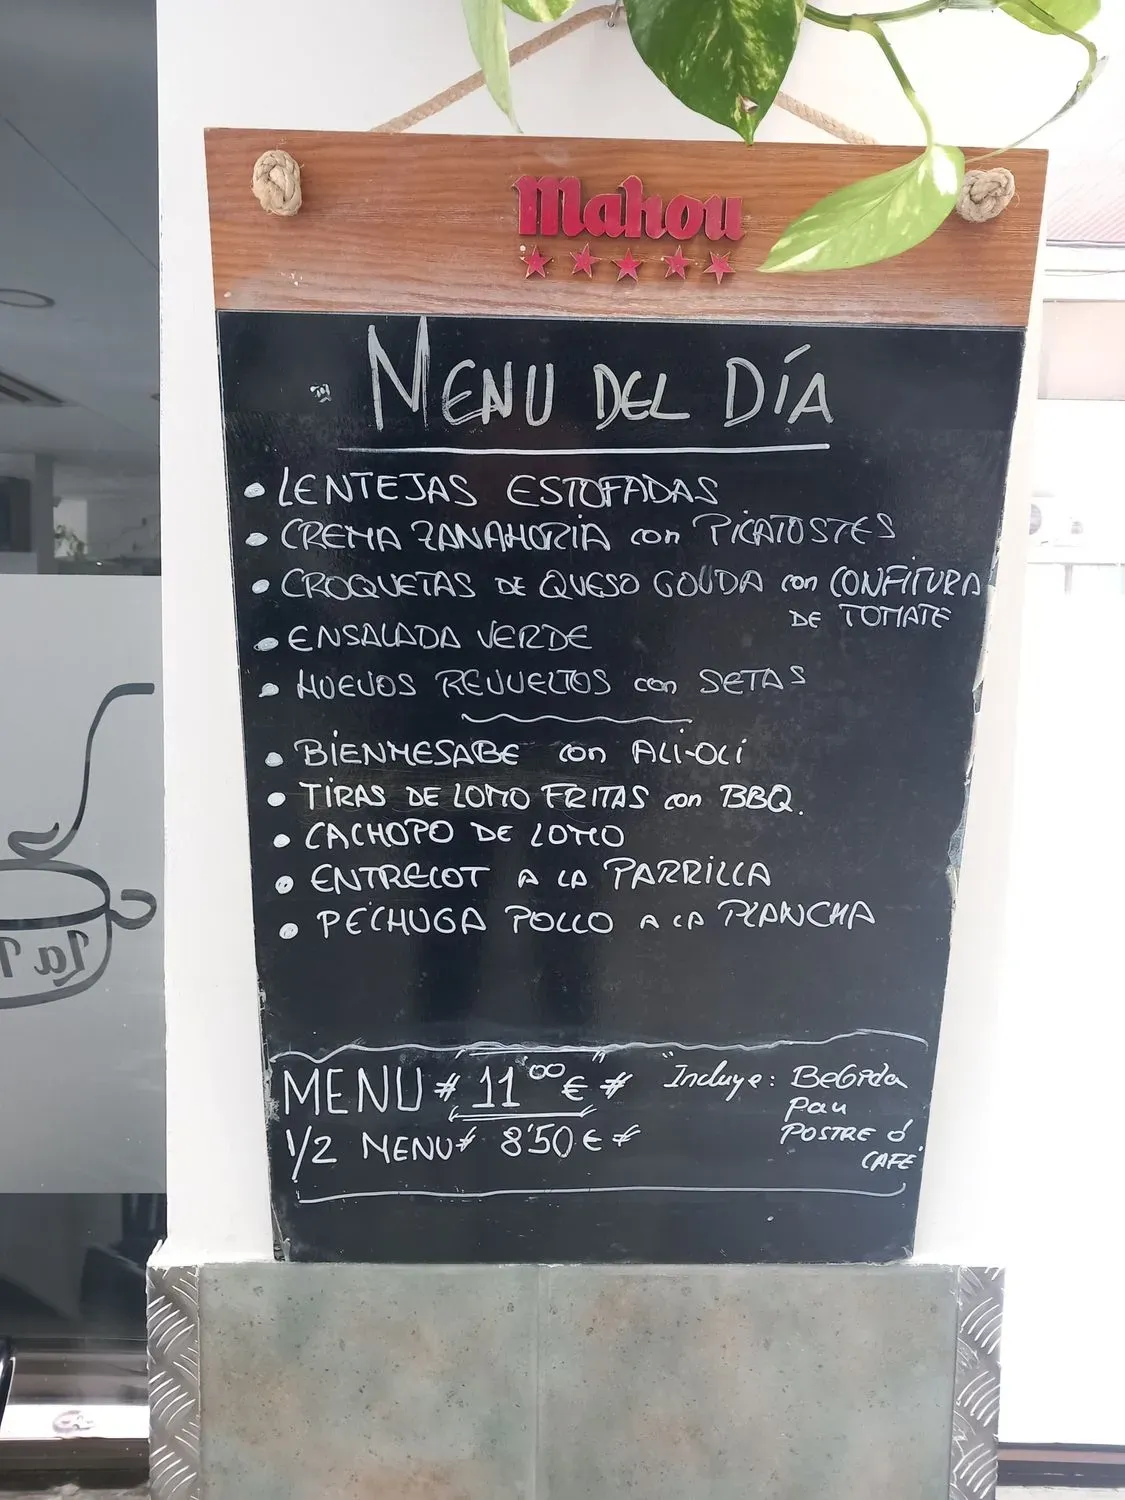 Mahou
MENU DEL DÍA
• LENTEJAS ESTOFADAS
• CREMA ZANAHORIA con PICATOSTES
• CROQUETAS DE QUESO GOUDA con CONFITURA
DE TOMATE
• ENSALADA VERDE
• HUEVOS REVUELTOS con SETAS
• BIENMESABE con ALI-OLI
• TIRAS DE LOMO FRITAS con BBQ.
• CACHOPO DE LOMO
• ENTRECOT A LA PARRILLA
• PECHUGA POLLO A LA PLANCHA
MENU # 11'00 € # "Incluye: Bebida
pan
1/2 MENU # 8'50 € # POSTRE ó
CAFÉ"